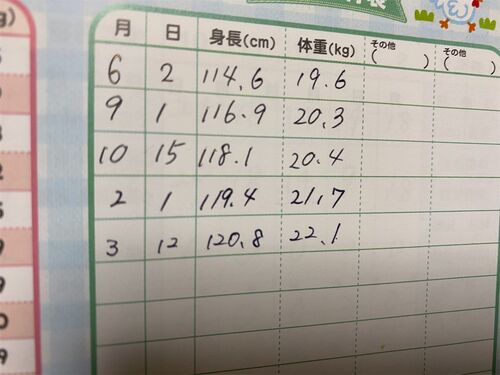 月 日 身長(cm) 体重(kg) その他( ) その他( )
6 2 114.6 19.6
9 1 116.9 20.3
10 15 118.1 20.4
2 1 119.4 21.7
3 12 120.8 22.1